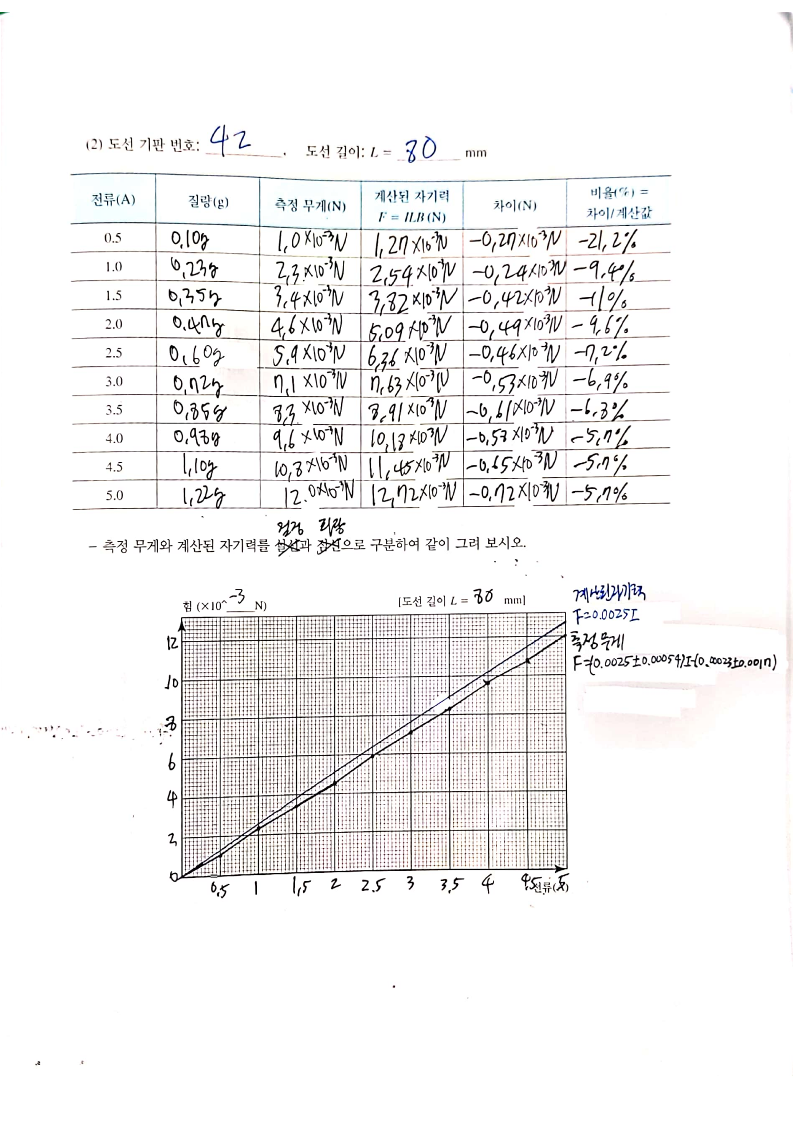 (2) 도선 기판 번호: 42. 도선 길이: L = 80 mm
전류(A) 질량(g) 측정 무게(N) 계산된 자기력 F = ILB (N) 차이(N) 비율(%) = 차이/계산값
0.5 0,10g 1,0×10⁻³N 1,27×10⁻³N -0,27×10⁻³N -21,2%
1.0 0,23g 2,3×10⁻³N 2,54×10⁻³N -0,24×10⁻³N -9,4%
1.5 0,35g 3,4×10⁻³N 3,82×10⁻³N -0,42×10⁻³N -11%
2.0 0,47g 4,6×10⁻³N 5,09×10⁻³N -0,49×10⁻³N -9,6%
2.5 0,60g 5,9×10⁻³N 6,36×10⁻³N -0,46×10⁻³N -7,2%
3.0 0,72g 7,1×10⁻³N 7,63×10⁻³N -0,53×10⁻³N -6,9%
3.5 0,85g 8,3×10⁻³N 8,91×10⁻³N -0,61×10⁻³N -6,8%
4.0 0,98g 9,6×10⁻³N 10,18×10⁻³N -0,58×10⁻³N -5,7%
4.5 1,10g 10,8×10⁻³N 11,45×10⁻³N -0,65×10⁻³N -5,7%
5.0 1,22g 12.0×10⁻³N 12,72×10⁻³N -0,72×10⁻³N -5,7%
검정 파랑
– 측정 무게와 계산된 자기력를 실선과 점선으로 구분하여 같이 그려 보시오.
힘 (×10^-3 N) [도선 길이 L = 80 mm]
계산된자기력
F=0.0025I
측정무게
F=(0.0025±0.00054)I-(0.00023±0.0017)
12
10
8
6
4
2
0
0,5 1 1,5 2 2.5 3 3,5 4 4.5 5
전류(A)